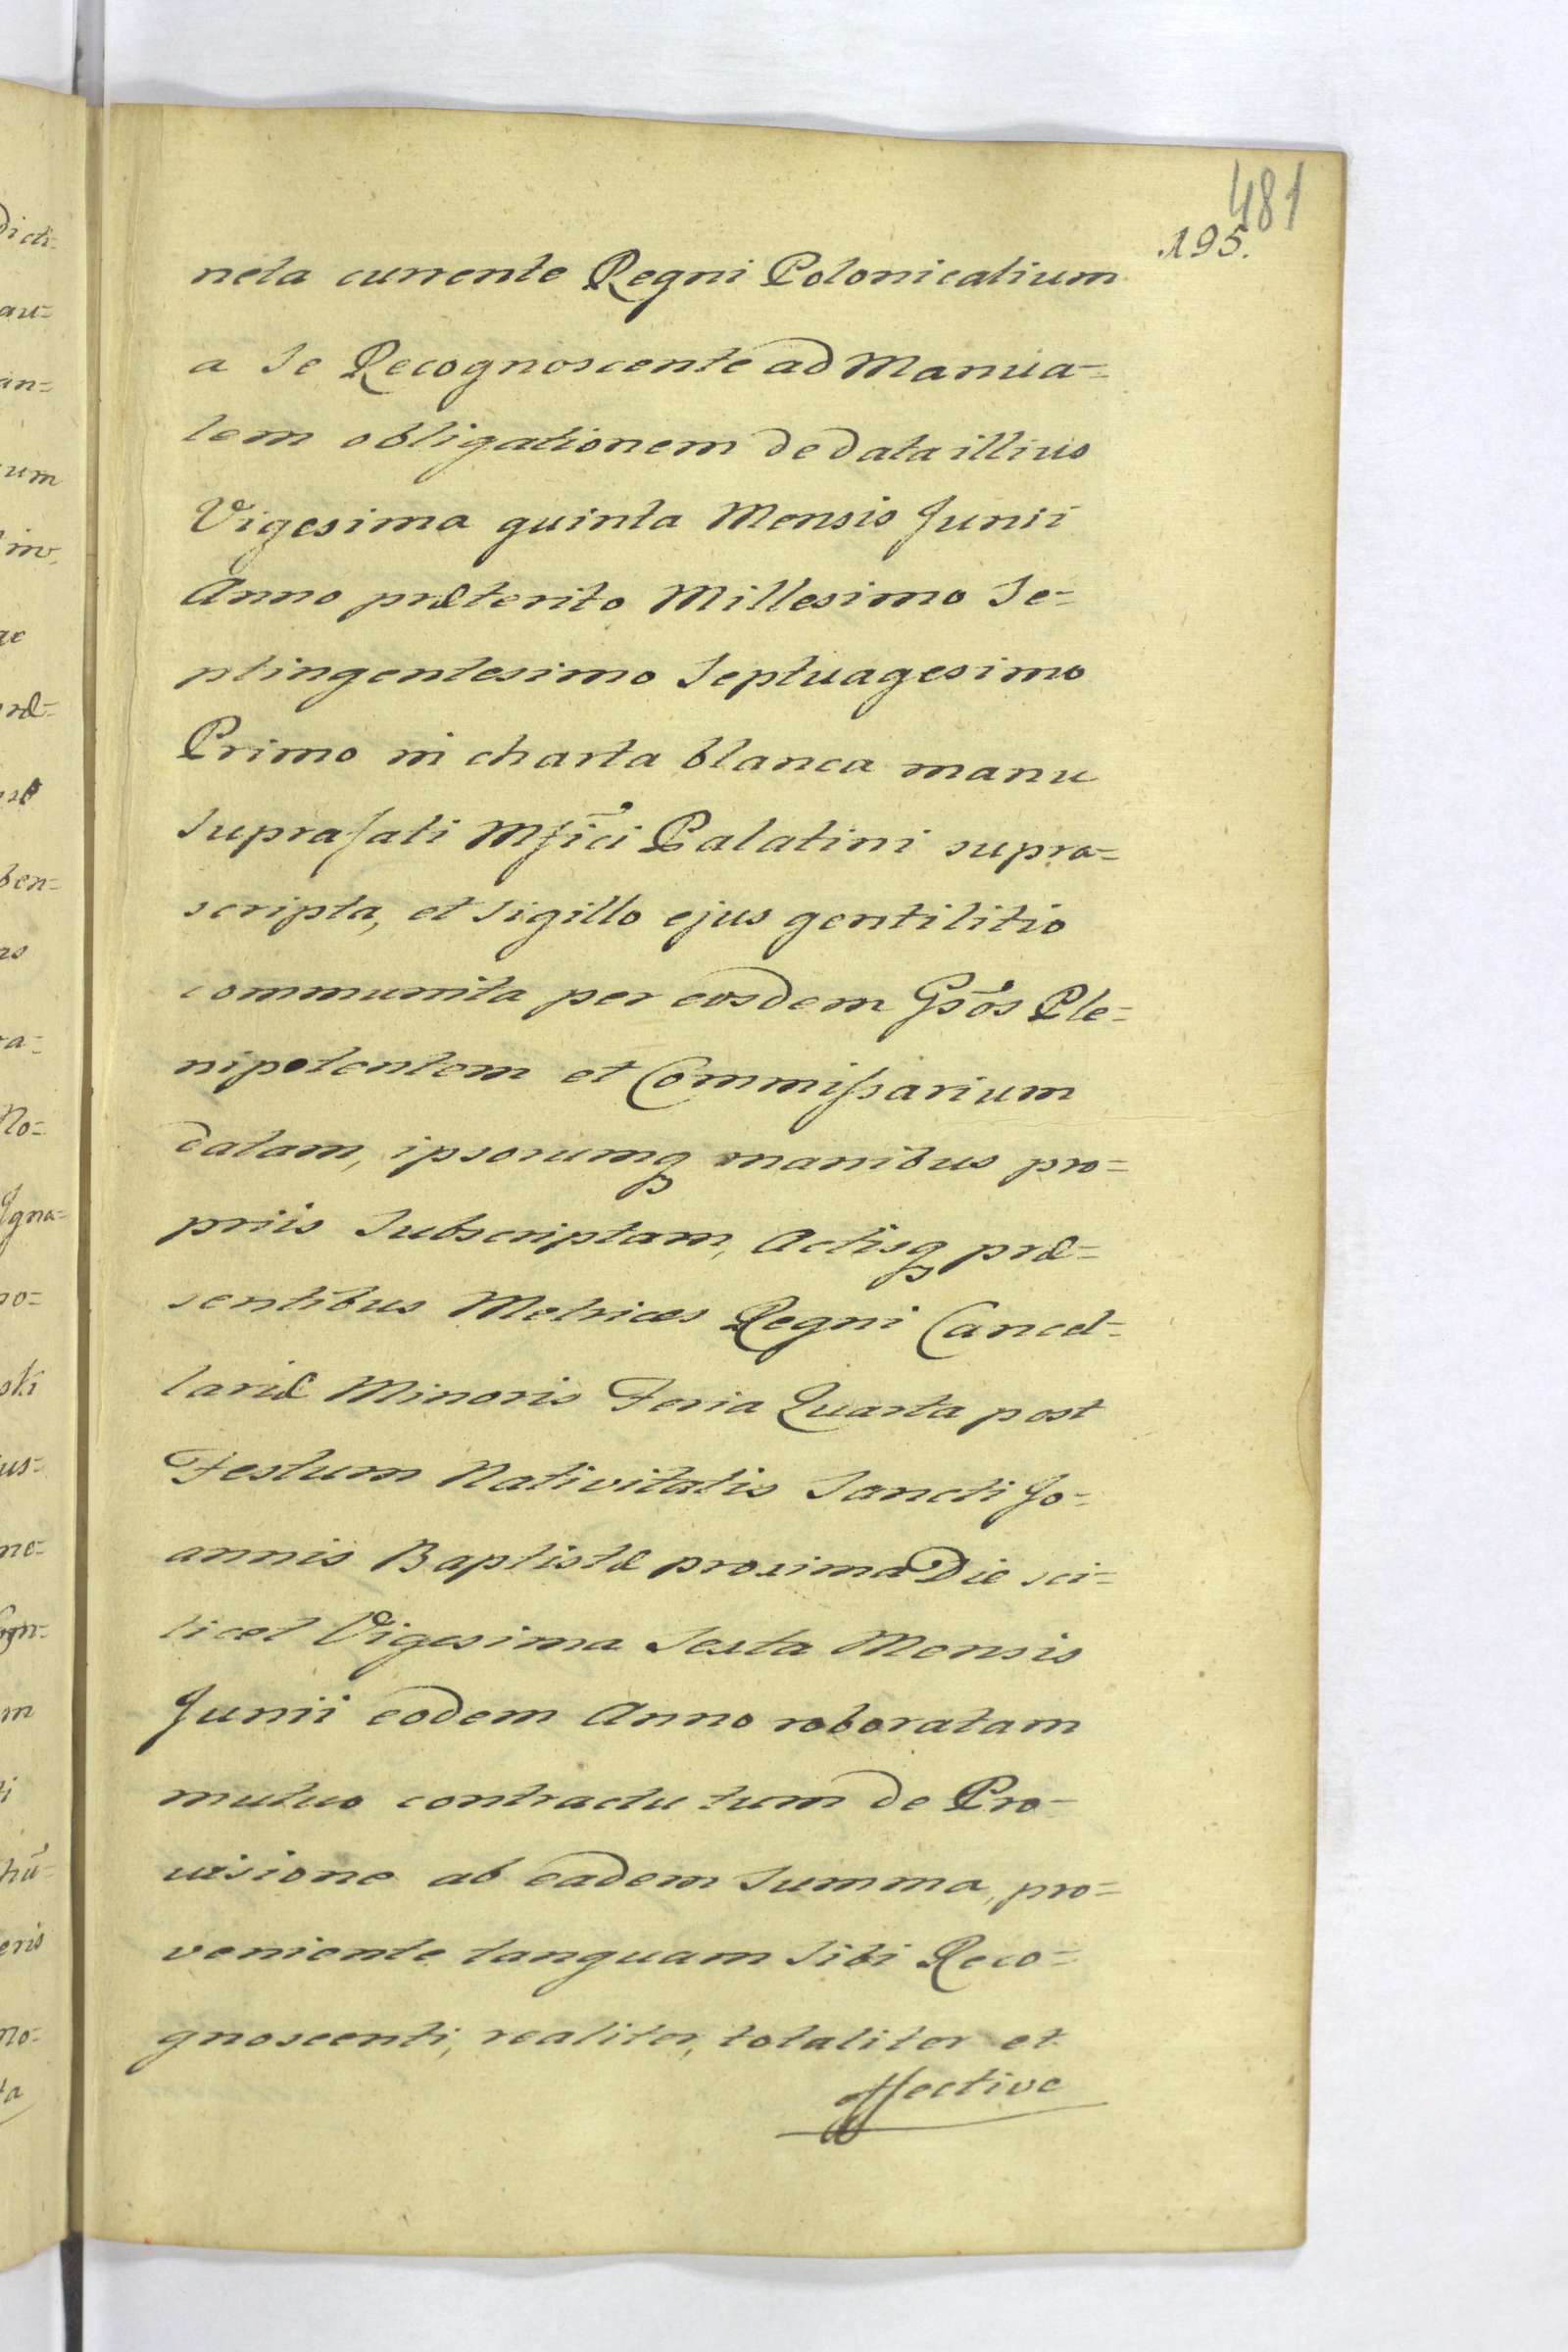 481
195.
neta currente Regni Polonicalium
a Se Recognoscente ad Manua=
lem obligationem de data illius
Vigesima quinta Mensis Junii
Anno præterito Millesimo Se=
ptingentesimo Septuagesimo
Primo in charta blanca manu
suprafati Mfici Palatini supra=
scripta, et Sigillo ejus gentilitio
communita per eosdem Gsos Ple=
nipotentem et Commissarium
datam, ipsorumq manibus pro=
priis Subscriptam, Actisq præ=
sentibus Metrices Regni Cancel=
lariæ Minoris Feria Quarta post
Festum Nativitatis Sancti Jo=
annis Baptistæ proxima Die sci=
licet Vigesima Sexta Mensis
Junii eodem Anno roboratam
mutuo contractu tum de Pro=
uisione ab eadem Summa, pro=
veniente tanquam Sibi Reco=
gnoscenti, realiter, totaliter et
effective